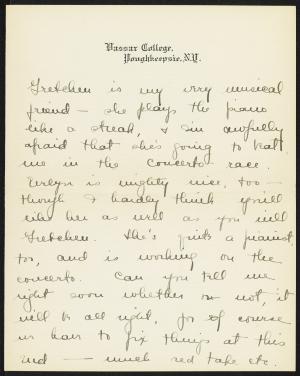 Vassar College,
Poughkeepsie, N.Y.
Gretchen is my very musical
friend — she plays the piano
like a streak, & I'm awfully
afraid that she's going to beat
me in the concerto race.
Evelyn is mighty nice, too —
though I hardly think you'll
like her as well as you will
Gretchen. She's quite a pianist,
too, and is working on the
concerto. Can you tell me
right soon whether or not, it
will be all right, for of course
we have to fix things at this
end — much red tape etc.